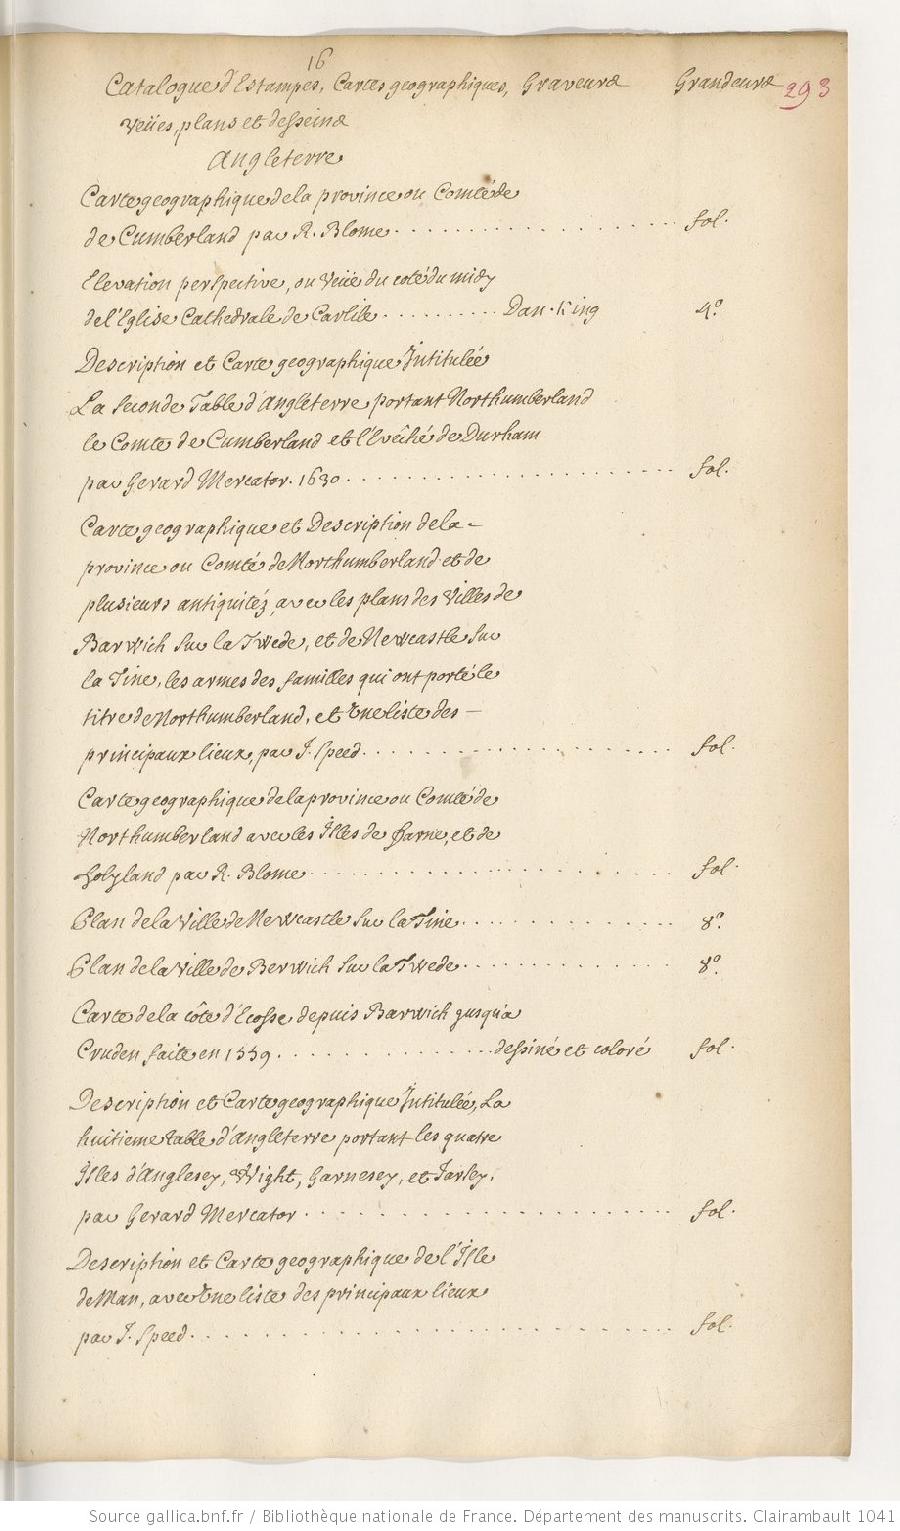 16
Catalogue d'Estampes, Cartes geographiques, Graveurs Grandeurs 293
Veües, plans et desseins
Angleterre
Carte geographique de la province ou Comté de
de Cumberland par R. Blome . . . . . . . . . . . . . . . . . . fol.
Elevation perspective, ou Veüe du coté du midy
de l'Eglise Cathedrale de Carlile . . . . . . . . . . Dan. King 4.º
Description et Carte geographique Intitulée
La Seconde Table d'Angleterre portant Northumberland
le Comte de Cumberland et l'Evêché de Durham
par Gerard Mercator. 1630 . . . . . . . . . . . . . . . . . . . . . . fol.
Carte geographique et Description de la -
province ou Comté de Northumberland et de
plusieurs antiquitéz, avec les plans des Villes de
Barwich sur la Twede, et de Newcastle sur
la Tine, les armes des familles qui ont porté le
titre de Northumberland, et Une liste des -
principaux lieux, par J. Speed . . . . . . . . . . . . . . . . . . . . fol.
Carte geographique de la province ou Comté de
Northumberland avec les Isles de Farne, et de
Holyland par R. Blome . . . . . . . . . . . . . . . . . . . . . . . . fol.
Plan de la Ville de Newcastle sur la Tine . . . . . . . . . . . . . . 8.º
Plan de la Ville de Berwich sur la Twede . . . . . . . . . . . . . . 8.º
Carte de la côte d'Ecosse depuis Barwich jusqu'a
Cruden faite en 1559 . . . . . . . . . . . . . . dessiné et coloré fol.
Description et Carte geographique Intitulée, La
huitieme table d'Angleterre portant les quatre
Isles d'Anglesey, Wight, Garnesey, et Jarsey,
par Gerard Mercator . . . . . . . . . . . . . . . . . . . . . . . . fol.
Description et Carte geographique de l'Isle
de Man, avec Une liste des principaux lieux
par J. Speed . . . . . . . . . . . . . . . . . . . . . . . . . . . . . fol.
Source gallica.bnf.fr / Bibliothèque nationale de France. Département des manuscrits. Clairambault 1041